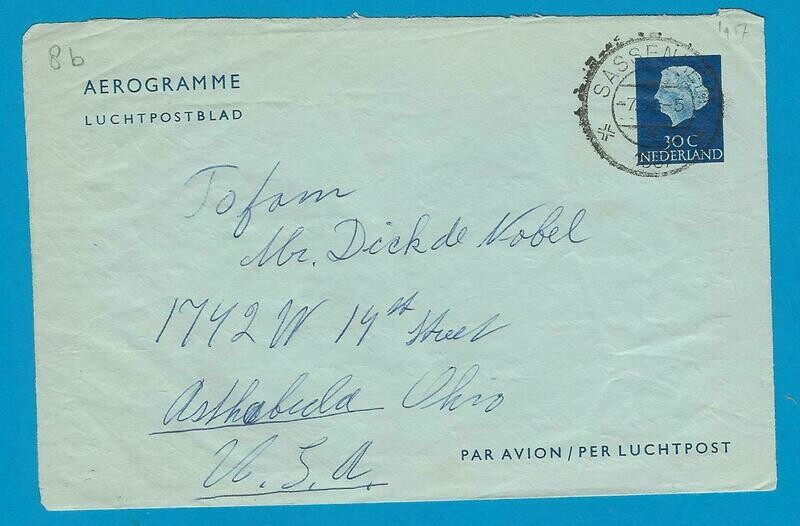 8b
1957
AEROGRAMME
LUCHTPOSTBLAD
SASSENHEIM
30 C
NEDERLAND
To fam
Mr. Dick de Nobel
1742 W 14st Street
Asthabula Ohio
U. S. A.
PAR AVION/PER LUCHTPOST